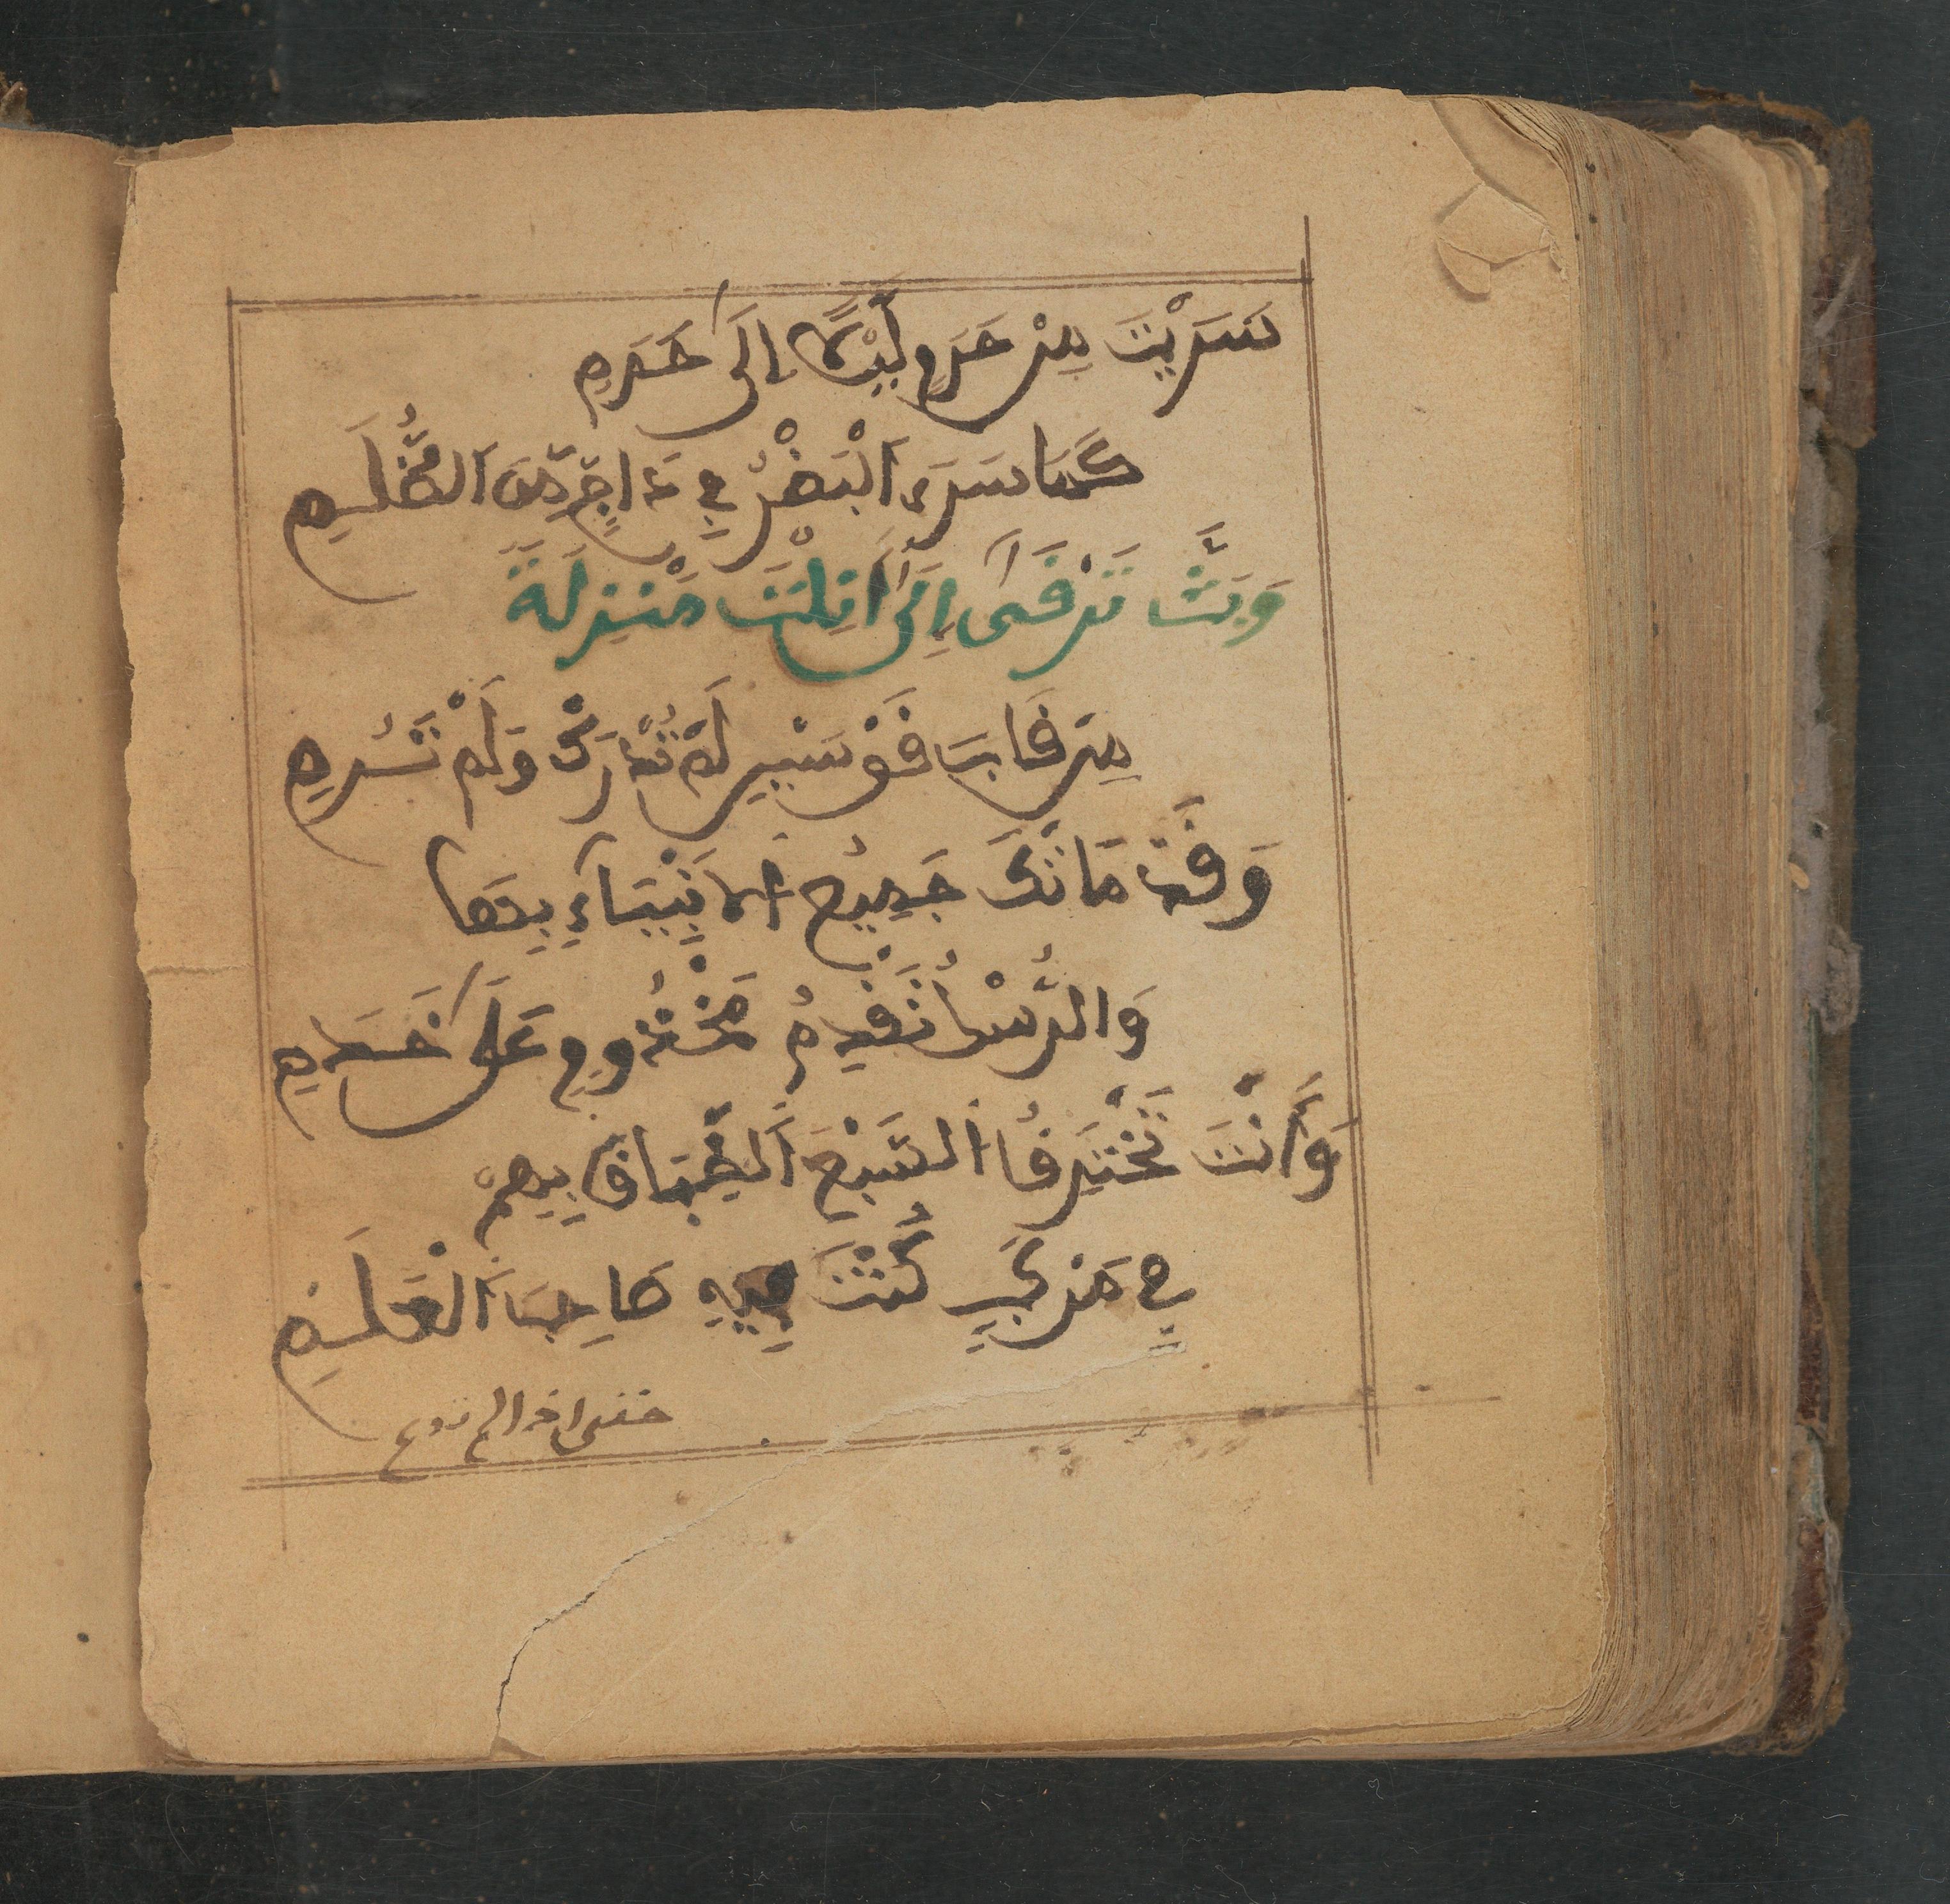 سَرَيْتَ مِنْ حَرَمٍ لَيْلًا إِلَى حَرَمِ
كَمَا سَرَى اَلْبَدْرُ فِي دَاجٍ مِّنَ اَلظُّلَمِ
وَبَتَّ تَرْقَى إِلَى أَن نِلْتَ مَنْزِلَةً
مِن قَابَ قَوْسَيْنِ لَمْ تُدْرَكْ وَلَمْ تُرَمِ
وَقَدَّمَتْكَ جَمِيعُ اَلَانْبِيَاءِ بِهَا
وَالرُّسْلُ تَقْدِيمُ مَخْدُومٍ عَلَى خَدَمِ
وَأَنْتَ تَخْتَرِقُ اَلسَّبْعَ اَلطِّبَاقَ بِهِمْ
فِي مَرْكَبٍ كُنْتَ فِيهِ صَاحِبَ اَلْعَلَمِ
حتى اذا لم تدع